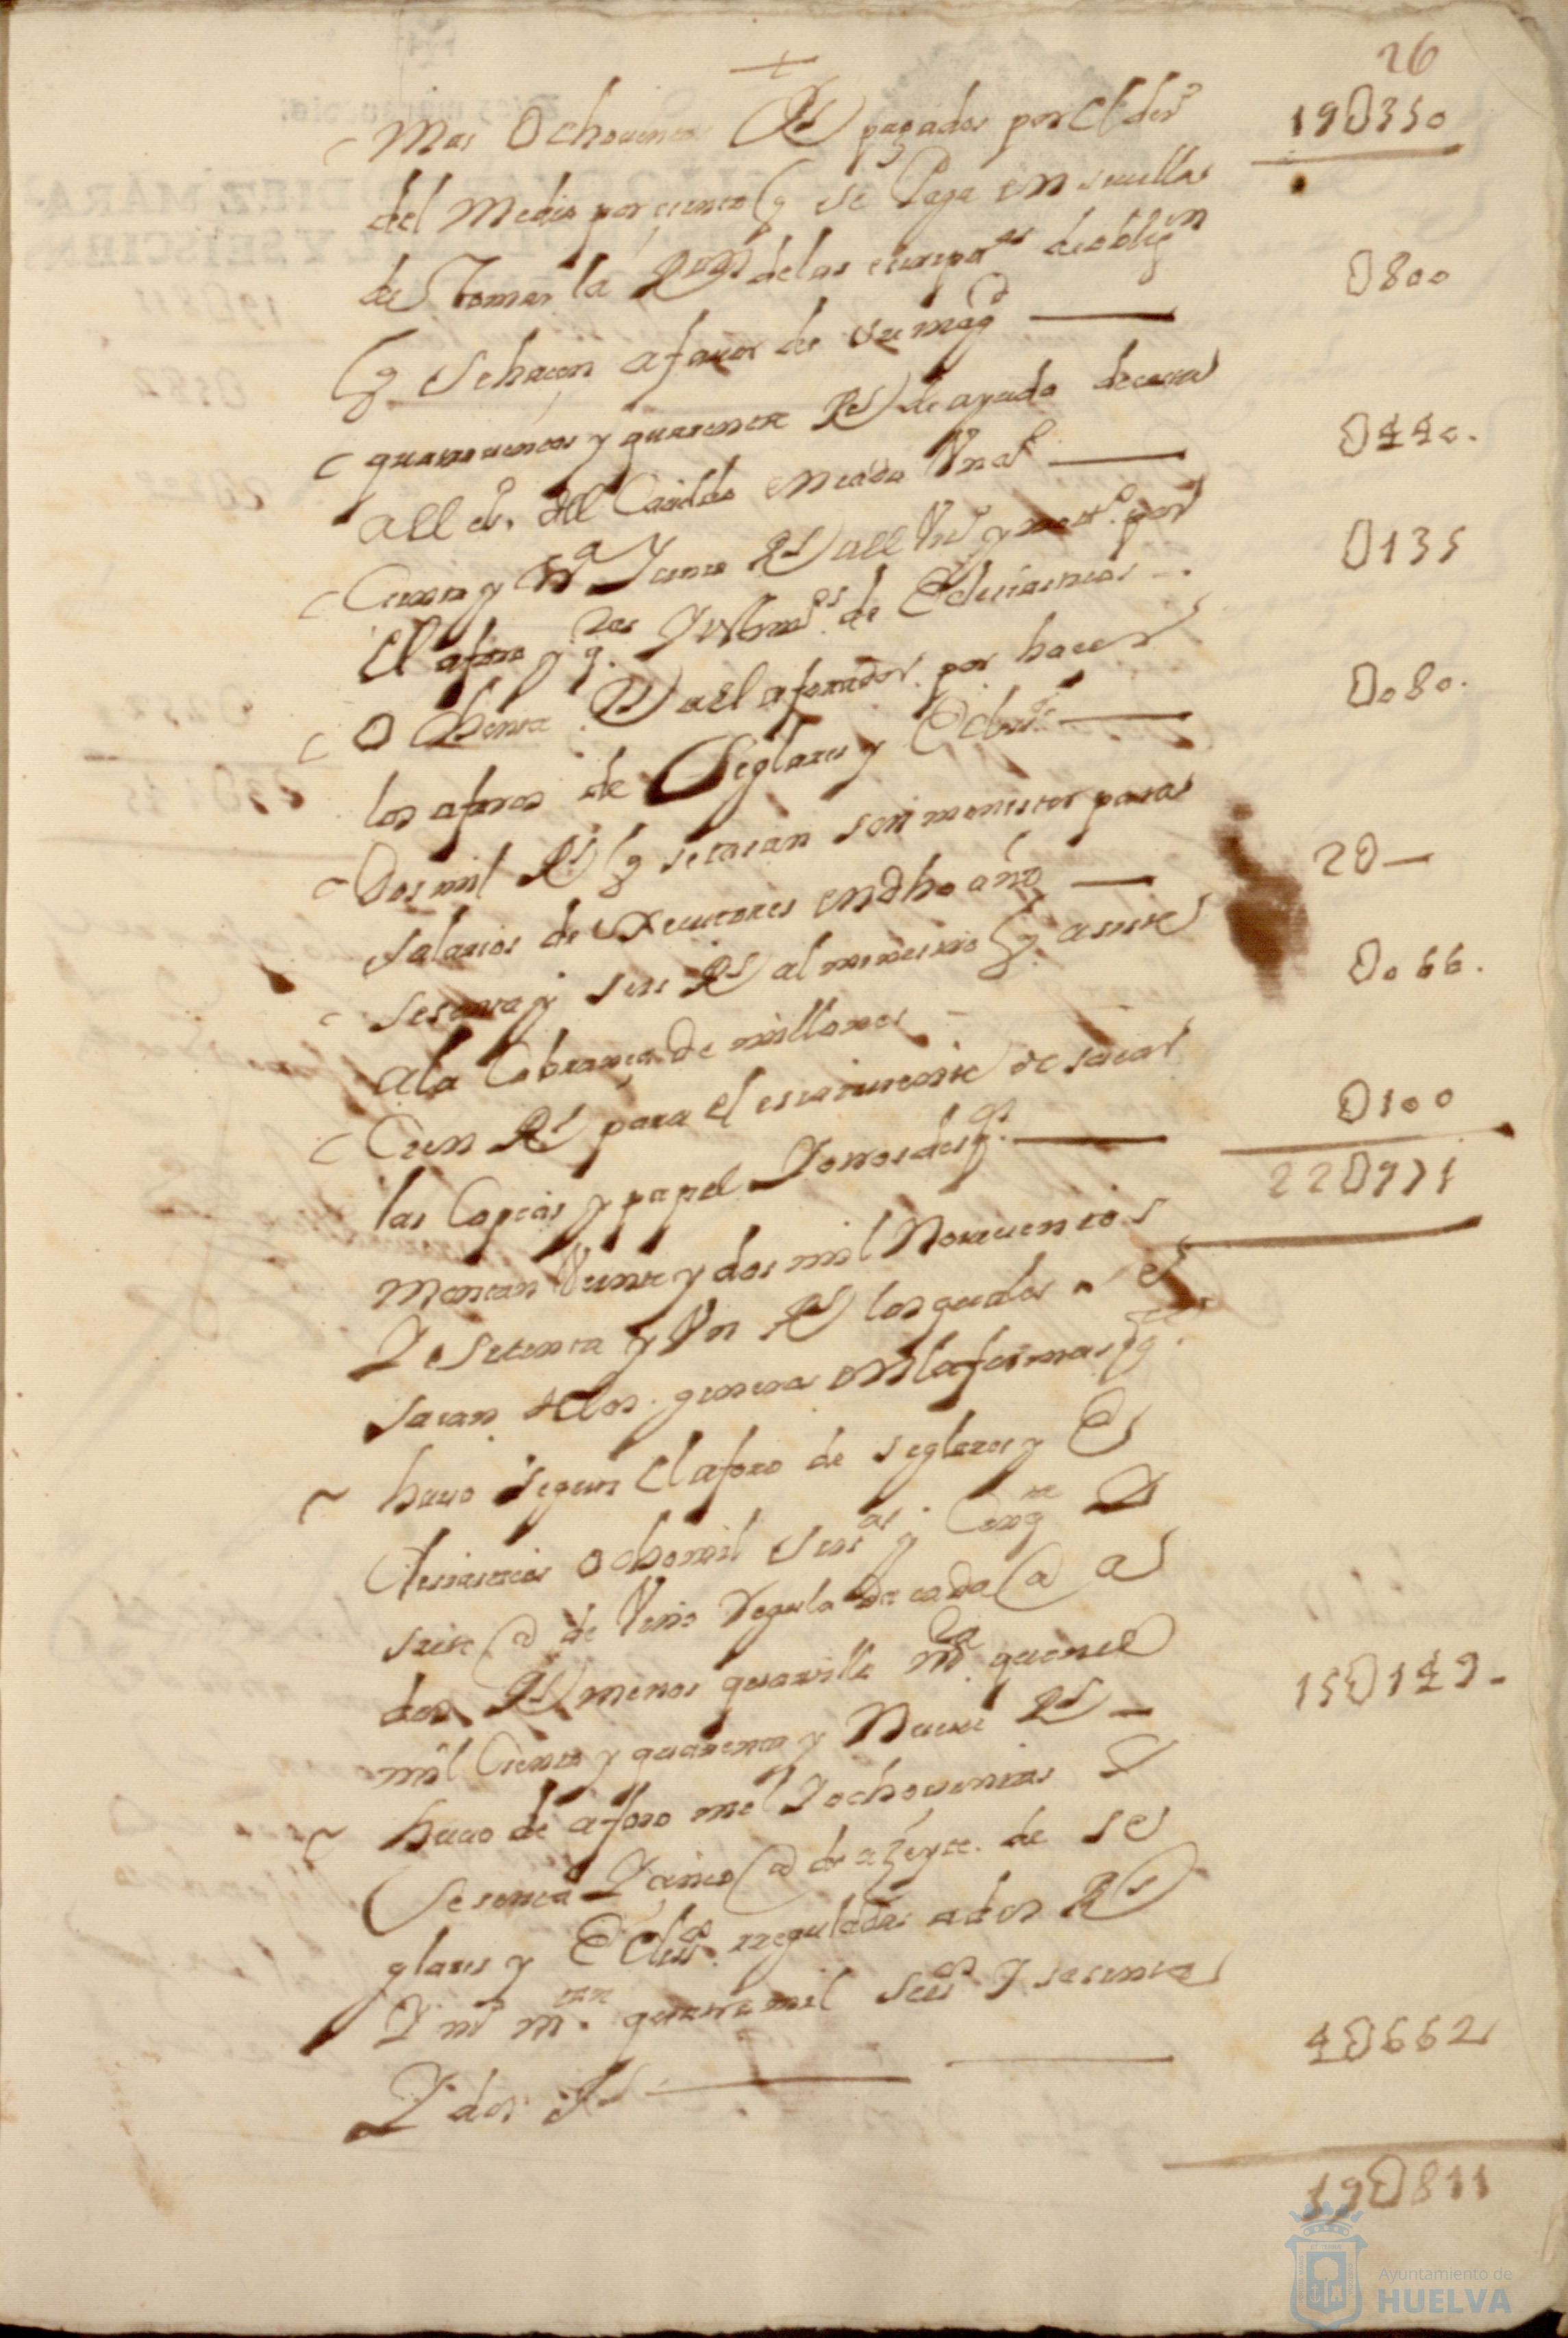 26
+
Mas Ochocientos Rs pagados por el dro 19U350
del Medio por ciento q se Paga en seuilla
de Tomar la Ron de las escrips de oblign
q se haçen a fauor de su magd — U800
quatrocientos y quarenta Rs de ayuda de costa
all es. del Cauildo en cada Un ao — U440.
Ciento y ta y cinco Rs all y nottro por
El aforo y de Eclesiasticos — U135
Ochenta Rs all aforador por hacer
los aforos de Seglares y Eclcos — U080.
Dos mil Rs q se tasan son menester para
salarios de executores en dho año — 2U—
Sesenta y seis Rs al ministro q asiste
a la Cobrança de millones — U066.
Cien Rs para el escriuiente de sacar
las Copias y papel Y otros — U100
22U971
Montan Veinte y dos mil Nouecientos
Y Setenta y Un Rs los quales se
sacan de los generos en la forma sigte
huuo segun el aforo de seglares y E
clesiasticos ocho mil seisos y Cinqta Y
siete @ de Vino Regulada cada @ a
dos Rs menos quartillo mta quince
mil Ciento y quarenta y Nueue Rs — 15U149-
huuo de aforo mil Y ochocientas Y
Sesenta Y cinco @ de azeyte de se
glares y Eclescos rreguladas a dos Rs
Y mo mtan quatro mil seisos Y sesenta
Y dos Rs — 4U662
19U811
Ayuntamiento de
HUELVA